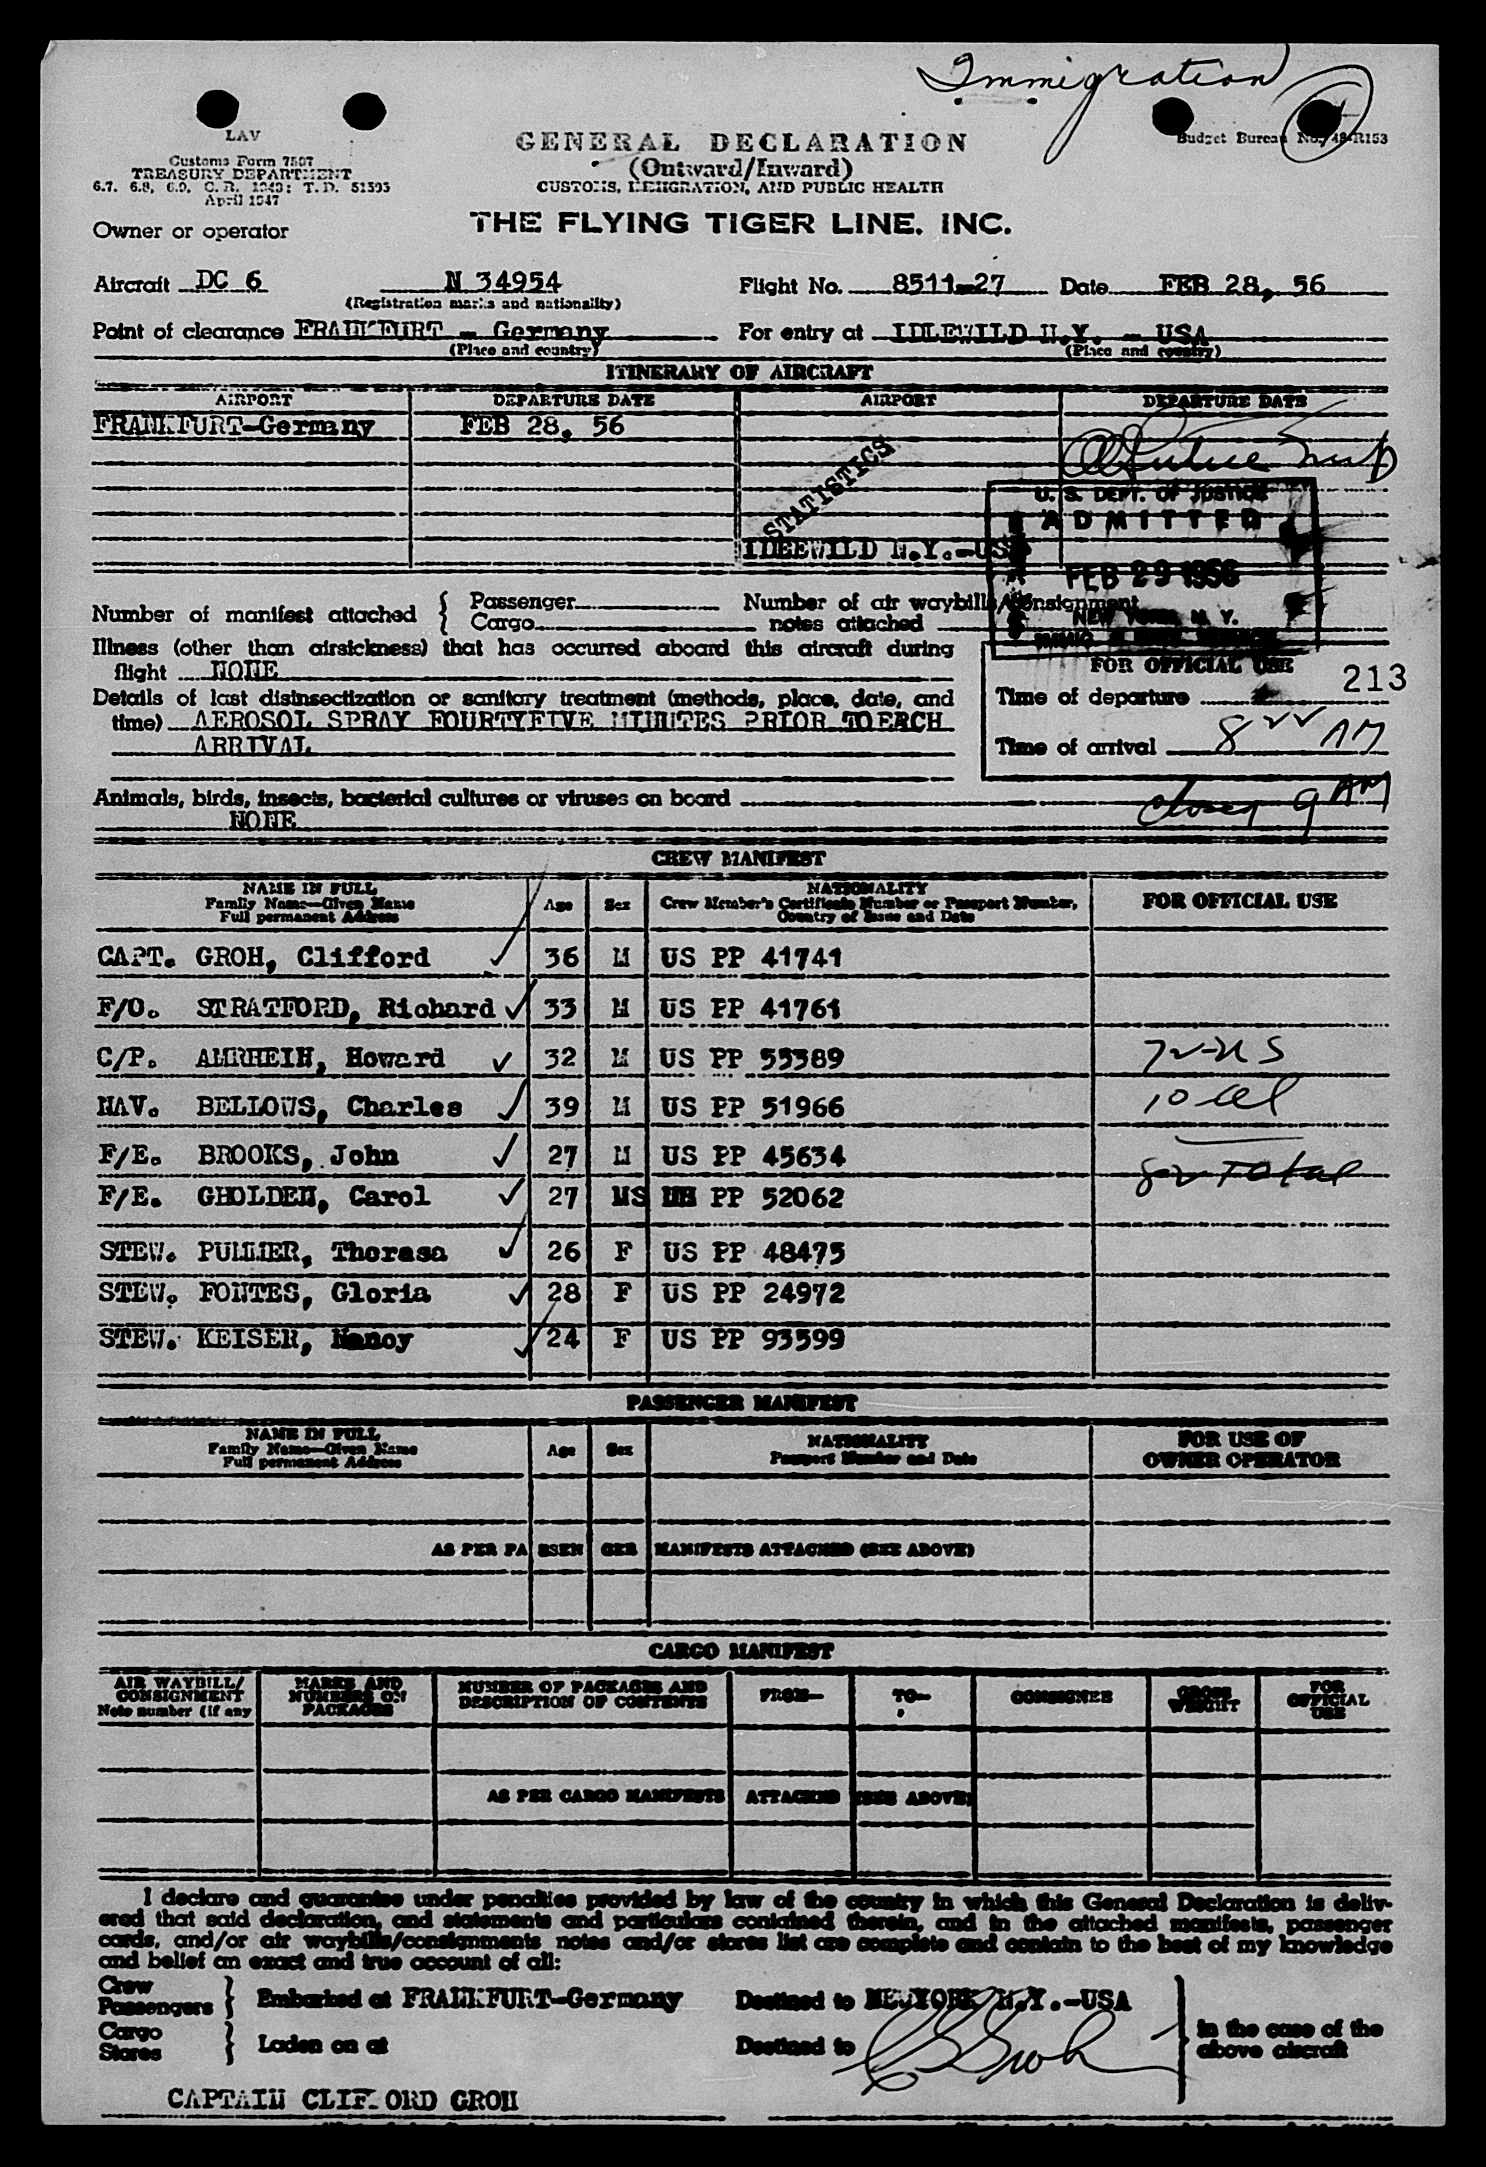 Immigration
LAV
Customs Form 7507
TREASURY DEPARTMENT
6.7, 6.8, 6.9, C. R. 1943; T. D. 51595
April 1947
GENERAL DECLARATION
(Outward/Inward)
CUSTOMS, IMMIGRATION, AND PUBLIC HEALTH
Budget Bureau No. 48-R153
Owner or operator
THE FLYING TIGER LINE. INC.
Aircraft DC 6 N 34954 Flight No. 8511-27 Date FEB 28, 56
(Registration marks and nationality)
Point of clearance FRANKFURT - Germany For entry at IDLEWILD N.Y. - USA
(Place and country) (Place and country)
ITINERARY OF AIRCRAFT
AIRPORT DEPARTURE DATE AIRPORT DEPARTURE DATE
FRANKFURT-Germany FEB 28, 56
STATISTICS
U. S. DEPT. OF JUSTICE
ADMITTED
IDEEWILD N.Y.-US
FEB 29 1956
NEW YORK N. Y.
Number of manifest attached { Passenger Number of air waybills/consignment
Cargo notes attached
Illness (other than airsickness) that has occurred aboard this aircraft during
flight NONE
FOR OFFICIAL USE
213
Details of last disinsectization or sanitary treatment (methods, place, date, and
time) AEROSOL SPRAY FOURTYFIVE MINUTES PRIOR TO EACH
ARRIVAL
Time of departure
Time of arrival 8 AM
Animals, birds, insects, bacterial cultures or viruses on board
NONE
closed 9 AM
CREW MANIFEST
NAME IN FULL
Family Name—Given Name
Full permanent Address
Age Sex
NATIONALITY
Crew Member's Certificate Number or Passport Number,
Country of Issue and Date
FOR OFFICIAL USE
CAPT. GROH, Clifford 36 M US PP 41741
F/O. STRATFORD, Richard 33 M US PP 41761
C/P. AMRHEIN, Howard 32 M US PP 55389 72-US
NAV. BELLOWS, Charles 39 M US PP 51966 10 al
F/E. BROOKS, John 27 M US PP 45634
82 Total
F/E. GHOLDEN, Carol 27 MS PP 52062
STEW. PULLIER, Thorasa 26 F US PP 48475
STEW. FONTES, Gloria 28 F US PP 24972
STEW. KEISER, Nancy 24 F US PP 93599
PASSENGER MANIFEST
NAME IN FULL
Family Name—Given Name
Full permanent Address
Age Sex
NATIONALITY
Passport Number and Date
FOR USE OF
OWNER OPERATOR
AS PER PASSENGER MANIFESTS ATTACHED (SEE ABOVE)
CARGO MANIFEST
AIR WAYBILL/
CONSIGNMENT
Note number (if any
MARKS AND
NUMBERS ON
PACKAGES
NUMBER OF PACKAGES AND
DESCRIPTION OF CONTENTS
FROM— TO— CONSIGNEE
GROSS
WEIGHT
FOR
OFFICIAL
USE
AS PER CARGO MANIFESTS ATTACHED (SEE ABOVE)
I declare and guarantee under penalties provided by law of the country in which this General Declaration is deliv-
ered that said declaration, and statements and particulars contained therein, and in the attached manifests, passenger
cards, and/or air waybills/consignments notes and/or stores list are complete and contain to the best of my knowledge
and belief an exact and true account of all:
Crew
Passengers } Embarked at FRANKFURT-Germany Destined to NEWYORK N.Y.-USA
Cargo
Stores } Laden on at Destined to
in the case of the
above aircraft
C Groh
CAPTAIN CLIFFORD GROH